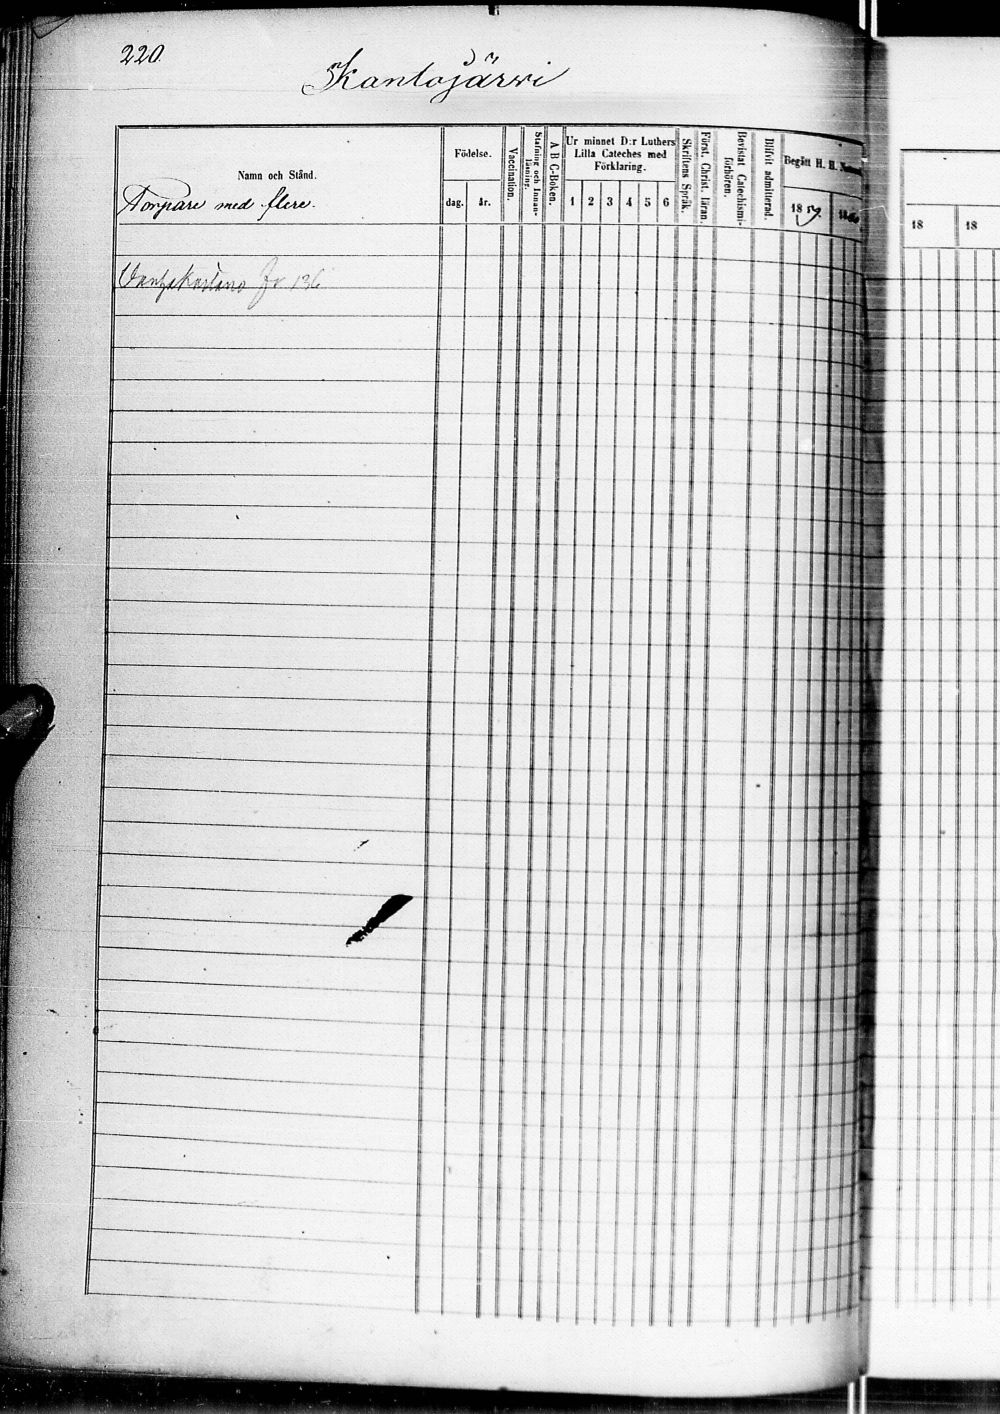 220.
Kantojärwi
Namn och Stånd.
Torpare med flere.
Födelse.
dag.
år.
Vaccination.
Stafning och Innan-
läsning.
A B C-Boken.
Ur minnet D:r Luthers
Lilla Cateches med
Förklaring.
1 2 3 4 5 6
Skriftens Språk.
Först. Christ. läran.
Bevistat Catechismi-
förhören.
Blifvit admitterad.
Begått H. H.
1859
136
18
18